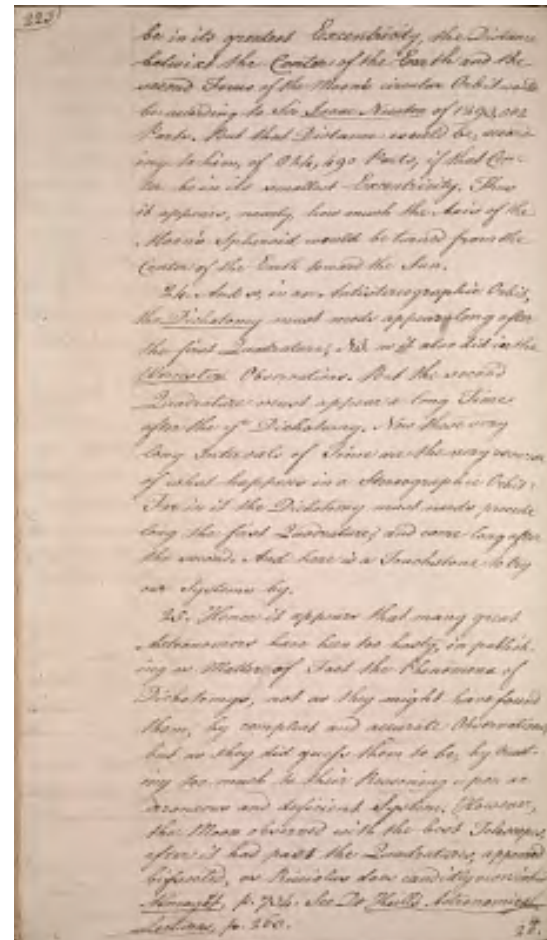 223
be in its greatest Excentricity, the Distance
betwixt the Center of the Earth and the
second Focus of the Moon's circular Orbit would
be according to Sir Isaac Newton of
Parts. But that Distance would be, accord-
ing to him, of Parts, if that Cen-
ter be in its smallest Excentricity. Thus
it appears, nearly, how much the Axis of the
Moon's Spheroid would be turned from the
Center of the Earth toward the Sun.
24. And so, in an Antistereographic Orbit,
the Dichotomy must needs appear long after
the first Quadrature; as it also did in the
Observations. But the second
Quadrature must appear a long Time
after the Dichotomy. Now these very
long Intervals of Time are the very reverse
of what happens in a Stereographic Orbit:
For in it the Dichotomy must needs precede
long the first Quadrature; and come long after
the second. And here is a Touchstone to try
our Systems by.
25. Hence it appears that many great
Astronomers have been too hasty, in publish-
ing as Matter of Fact the Phenomena of
Dichotomys, not as they might have found
them, by compleat and accurate Observations,
but as they did guess them to be, by trust-
ing too much to their Reasoning upon an
erroneous and deficient System. However,
the Moon observed with the best Telescopes,
after it had past the Quadratures, appeared
bisected, as Ricciolus does candidly
Almagest, p. 734. See Dr Keill's Astronomical
Lectures, p. 260.